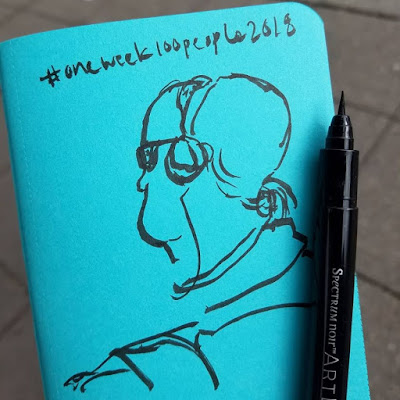 #oneweek100people2018
SPECTRUM NOIR™ ARTI